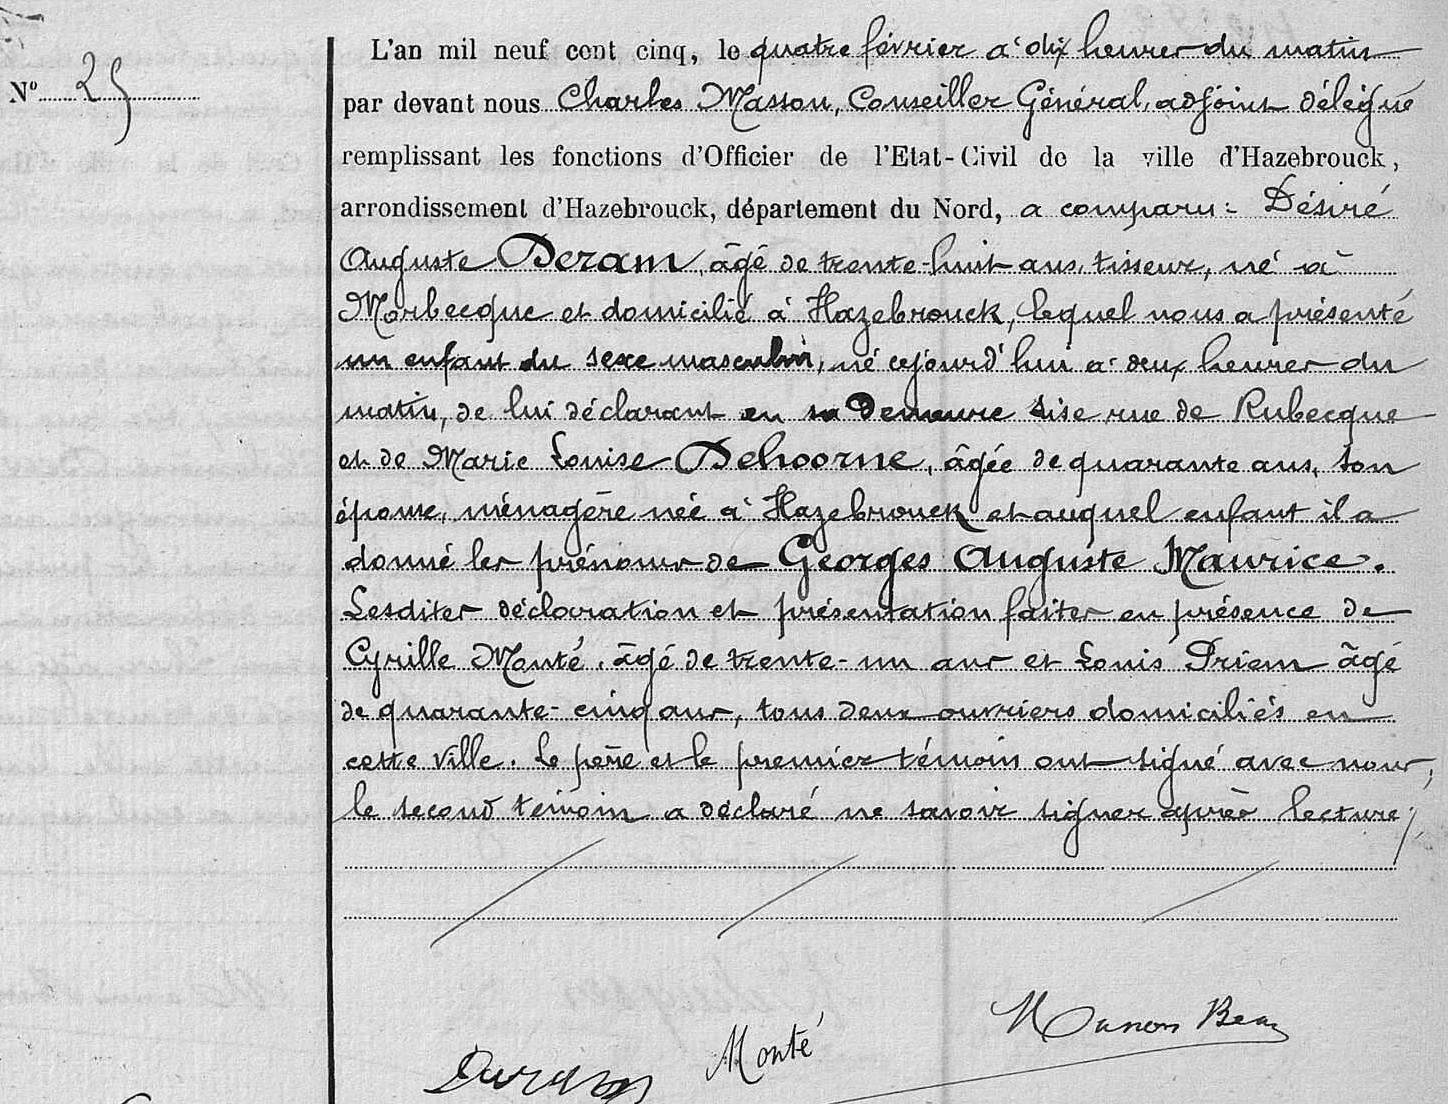 Nº 25
L'an mil neuf cent cinq, le quatre février à dix heures du matin
par devant nous Charles Masson, Conseiller Général, adjoint délégué
remplissant les fonctions d'Officier de l'Etat-Civil de la ville d'Hazebrouck,
arrondissement d'Hazebrouck, département du Nord, a comparu : Désiré
Auguste Deram, âgé de trente-huit ans, tisseur, né à
Morbecque et domicilié à Hazebrouck, lequel nous a présenté
un enfant du sexe masculin, né cejourd'hui à deux heures du
matin, de lui déclarant en sa demeure sise rue de Rubecque
et de Marie Louise Dehoorne, âgée de quarante ans, son
épouse, ménagère née à Hazebrouck et auquel enfant il a
donné les prénoms de Georges Auguste Maurice.
Lesdites déclaration et présentation faites en présence de
Cyrille Monté, âgé de trente-un ans et Louis Driem âgé
de quarante-cinq ans, tous deux ouvriers domiciliés en
cette ville. Le père et le premier témoin ont signé avec nous,
le second témoin a déclaré ne savoir signer après lecture
Deram
Monté
Masson Beau